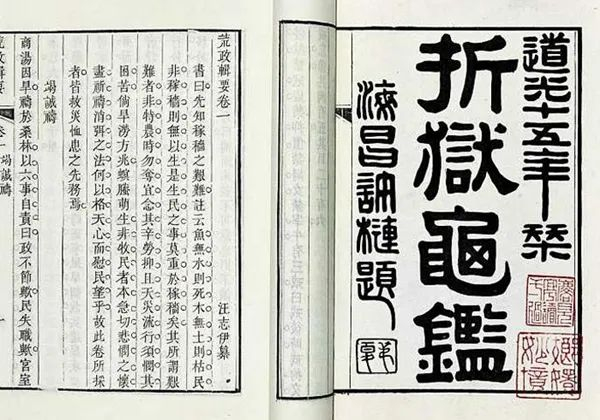 道光十五年栞
折獄龜鑑
海昌許槤題
嫏嬛妙境
荒政輯要卷一
汪志伊纂
書曰先知稼穡之艱難註云魚無水則死木無土則枯民
非稼穡則無以生是生民之事莫重於稼穡矣其所謂艱
難者非特農時勿奪宜念其辛勞抑且天災流行須憫其
困苦倘旱澇方兆螟螣萌生非牧民者本急切悲憫之懷
盡祈禱消弭之法何以格天心而慰民望乎故此卷所採
者皆救災恤患之先務焉
竭誠禱
商湯因旱禱於桑林以六事自責曰政不節歟民失職歟宮室
荒政輯要 卷一 竭誠禱